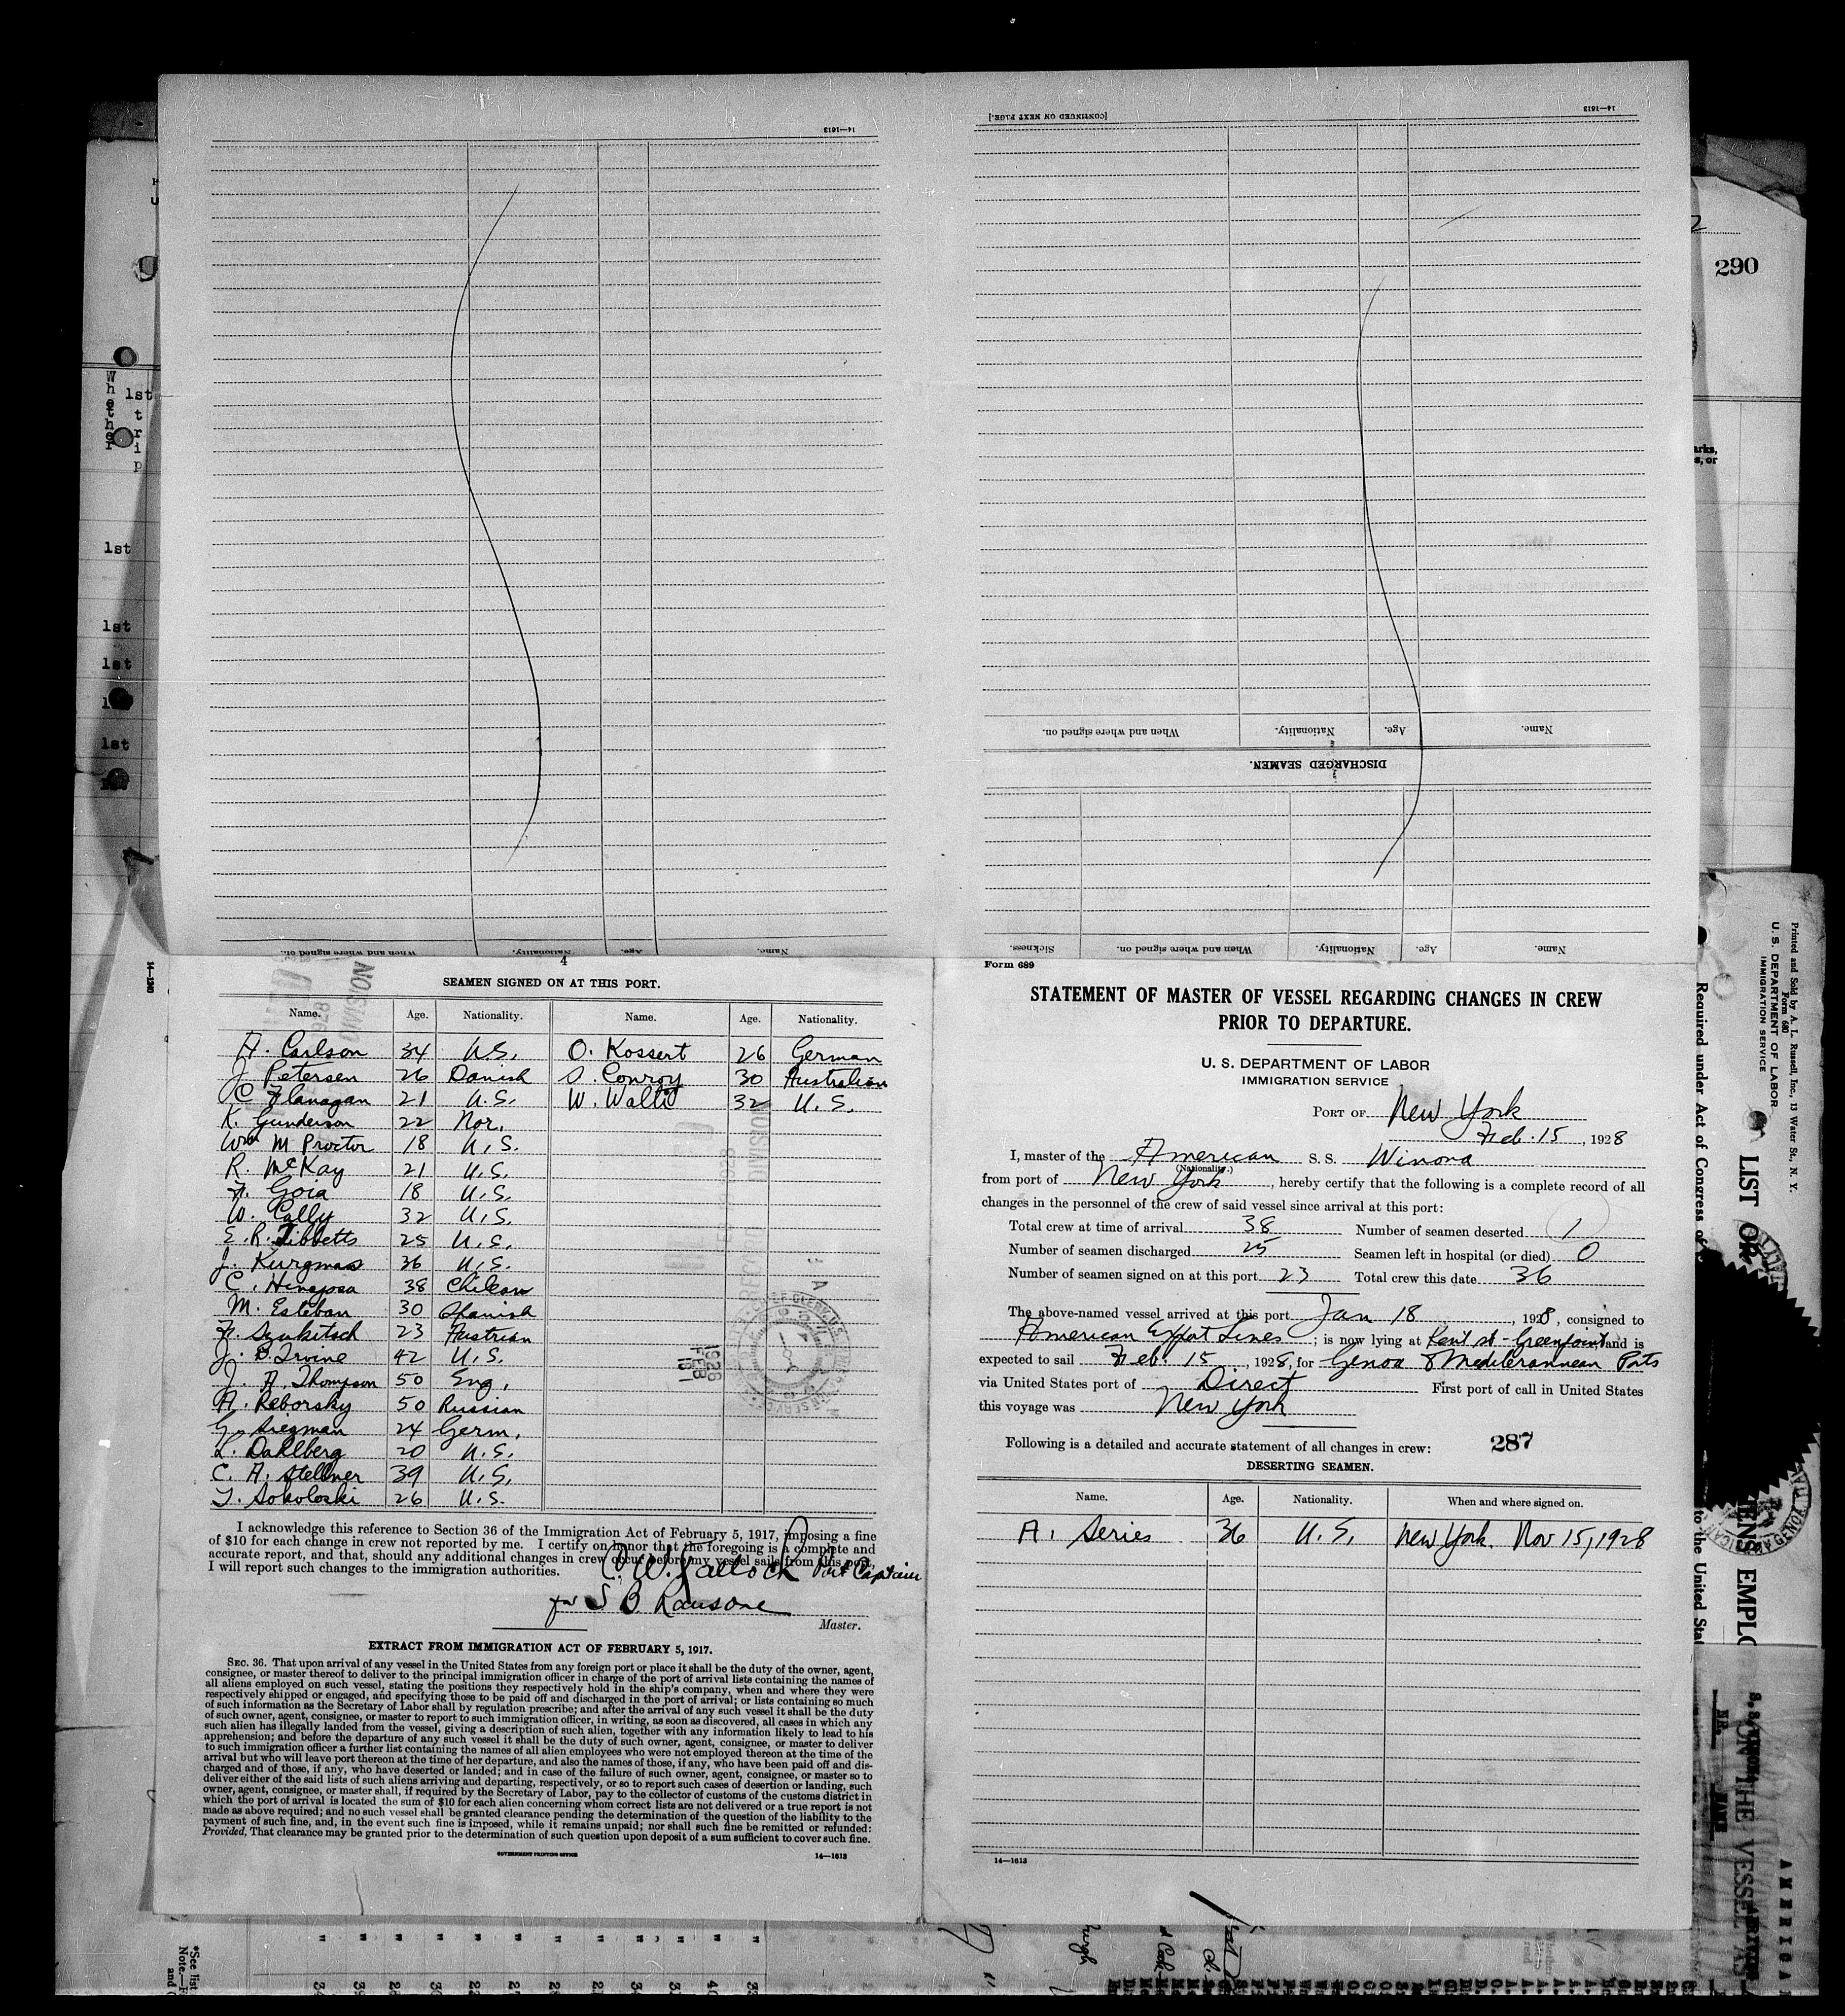 14—1613
[CONTINUED ON NEXT PAGE.]
14—1613
When and where signed on.
Nationality.
Age.
Name.
DISCHARGED SEAMEN.
Sickness.
When and where signed on.
Nationality.
Age.
Name.
When and where signed on.
Nationality.
Age.
Name.
4
SEAMEN SIGNED ON AT THIS PORT.
Name. Age. Nationality. Name. Age. Nationality.
A. Carlson 34 U.S. O. Kossert 26 German
J. Petersen 26 Danish S. Conroy 30 Australian
C Flanagan 21 U.S. W. Walti 32 U.S.
K. Gunderson 22 Nor.
Wm M Proctor 18 U.S.
R. McKay 21 U.S.
F. Goia 18 U.S.
W. Cally 32 U.S.
E. R. Tibbetts 25 U.S.
J. Kurgmas 36 U.S.
C. Hinojosa 38 Chilean
M. Esteban 30 Spanish
F. Szukitsch 23 Austrian
J. B. Irvine 42 U.S.
J. A. Thompson 50 Eng.
A. Reborsky 50 Russian
G. Siegman 24 Germ.
L. Dahlberg 20 U.S.
C. A. Stellner 39 U.S.
T. Sokoloski 26 U.S.
1928 FEB
I acknowledge this reference to Section 36 of the Immigration Act of February 5, 1917, imposing a fine
of $10 for each change in crew not reported by me. I certify on honor that the foregoing is a complete and
accurate report, and that, should any additional changes in crew occur before my vessel sails from this port,
I will report such changes to the immigration authorities.
Port Captain
for S B Ransone
Master.
EXTRACT FROM IMMIGRATION ACT OF FEBRUARY 5, 1917.
SEC. 36. That upon arrival of any vessel in the United States from any foreign port or place it shall be the duty of the owner, agent,
consignee, or master thereof to deliver to the principal immigration officer in charge of the port of arrival lists containing the names of
all aliens employed on such vessel, stating the positions they respectively hold in the ship's company, when and where they were
respectively shipped or engaged, and specifying those to be paid off and discharged in the port of arrival; or lists containing so much
of such information as the Secretary of Labor shall by regulation prescribe; and after the arrival of any such vessel it shall be the duty
of such owner, agent, consignee, or master to report to such immigration officer, in writing, as soon as discovered, all cases in which any
such alien has illegally landed from the vessel, giving a description of such alien, together with any information likely to lead to his
apprehension; and before the departure of any such vessel it shall be the duty of such owner, agent, consignee, or master to deliver
to such immigration officer a further list containing the names of all alien employees who were not employed thereon at the time of the
arrival but who will leave port thereon at the time of her departure, and also the names of those, if any, who have been paid off and dis-
charged and of those, if any, who have deserted or landed; and in case of the failure of such owner, agent, consignee, or master so to
deliver either of the said lists of such aliens arriving and departing, respectively, or so to report such cases of desertion or landing, such
owner, agent, consignee, or master shall, if required by the Secretary of Labor, pay to the collector of customs of the customs district in
which the port of arrival is located the sum of $10 for each alien concerning whom correct lists are not delivered or a true report is not
made as above required; and no such vessel shall be granted clearance pending the determination of the question of the liability to the
payment of such fine, and, in the event such fine is imposed, while it remains unpaid; nor shall such fine be remitted or refunded:
Provided, That clearance may be granted prior to the determination of such question upon deposit of a sum sufficient to cover such fine.
GOVERNMENT PRINTING OFFICE
14—1613
Form 689
STATEMENT OF MASTER OF VESSEL REGARDING CHANGES IN CREW
PRIOR TO DEPARTURE.
U. S. DEPARTMENT OF LABOR
IMMIGRATION SERVICE
PORT OF New York
Feb. 15, 1928
I, master of the American S. S. Winona
(Nationality.)
from port of New York, hereby certify that the following is a complete record of all
changes in the personnel of the crew of said vessel since arrival at this port:
Total crew at time of arrival 38 Number of seamen deserted 1
Number of seamen discharged 25 Seamen left in hospital (or died) 0
Number of seamen signed on at this port 23 Total crew this date 36
The above-named vessel arrived at this port Jan 18, 1928, consigned to
American Export Lines; is now lying at Kent st - Greenpoint and is
expected to sail Feb. 15, 1928, for Genoa & Mediterannean Ports
via United States port of Direct First port of call in United States
this voyage was New York
Following is a detailed and accurate statement of all changes in crew: 287
DESERTING SEAMEN.
Name. Age. Nationality. When and where signed on.
A. Series 36 U.S. New York. Nov 15, 1928
14—1613
290
Whether 1st trip
1st
1st
1st
1st
14—1240
Printed and Sold by A. L. Russell, Inc., 13 Water St., N. Y.
Form 680
U. S. DEPARTMENT OF LABOR
IMMIGRATION SERVICE
LIST OR
Required under Act of Congress of
to the United Stat
ENS EMPLO
ON THE VESSEL AS
*See list
Note.
and